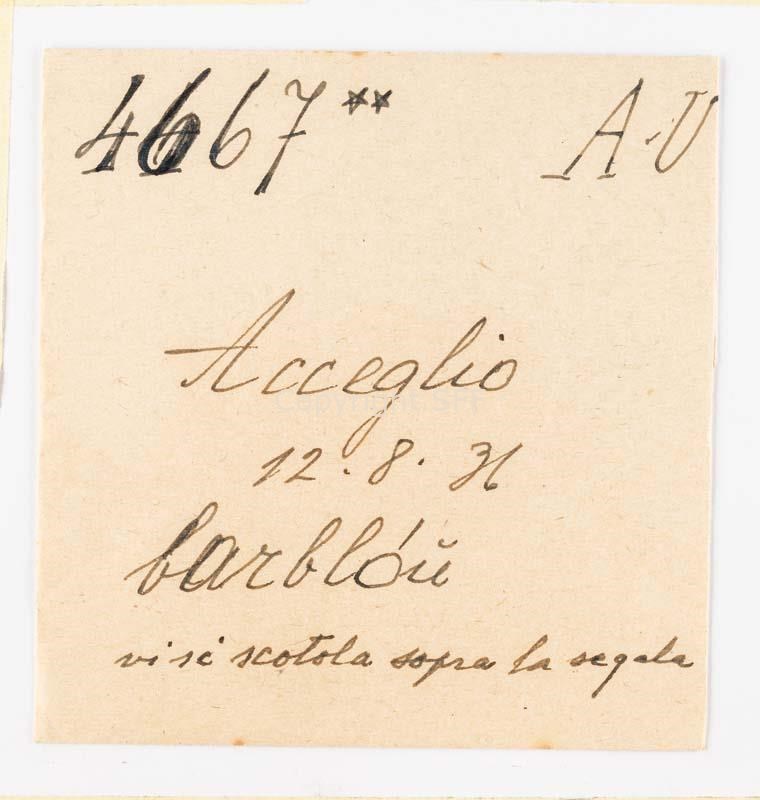 4667 ** A.U
Acceglio
12.8.31
barblóŭ
vi si scotola sopra la segala